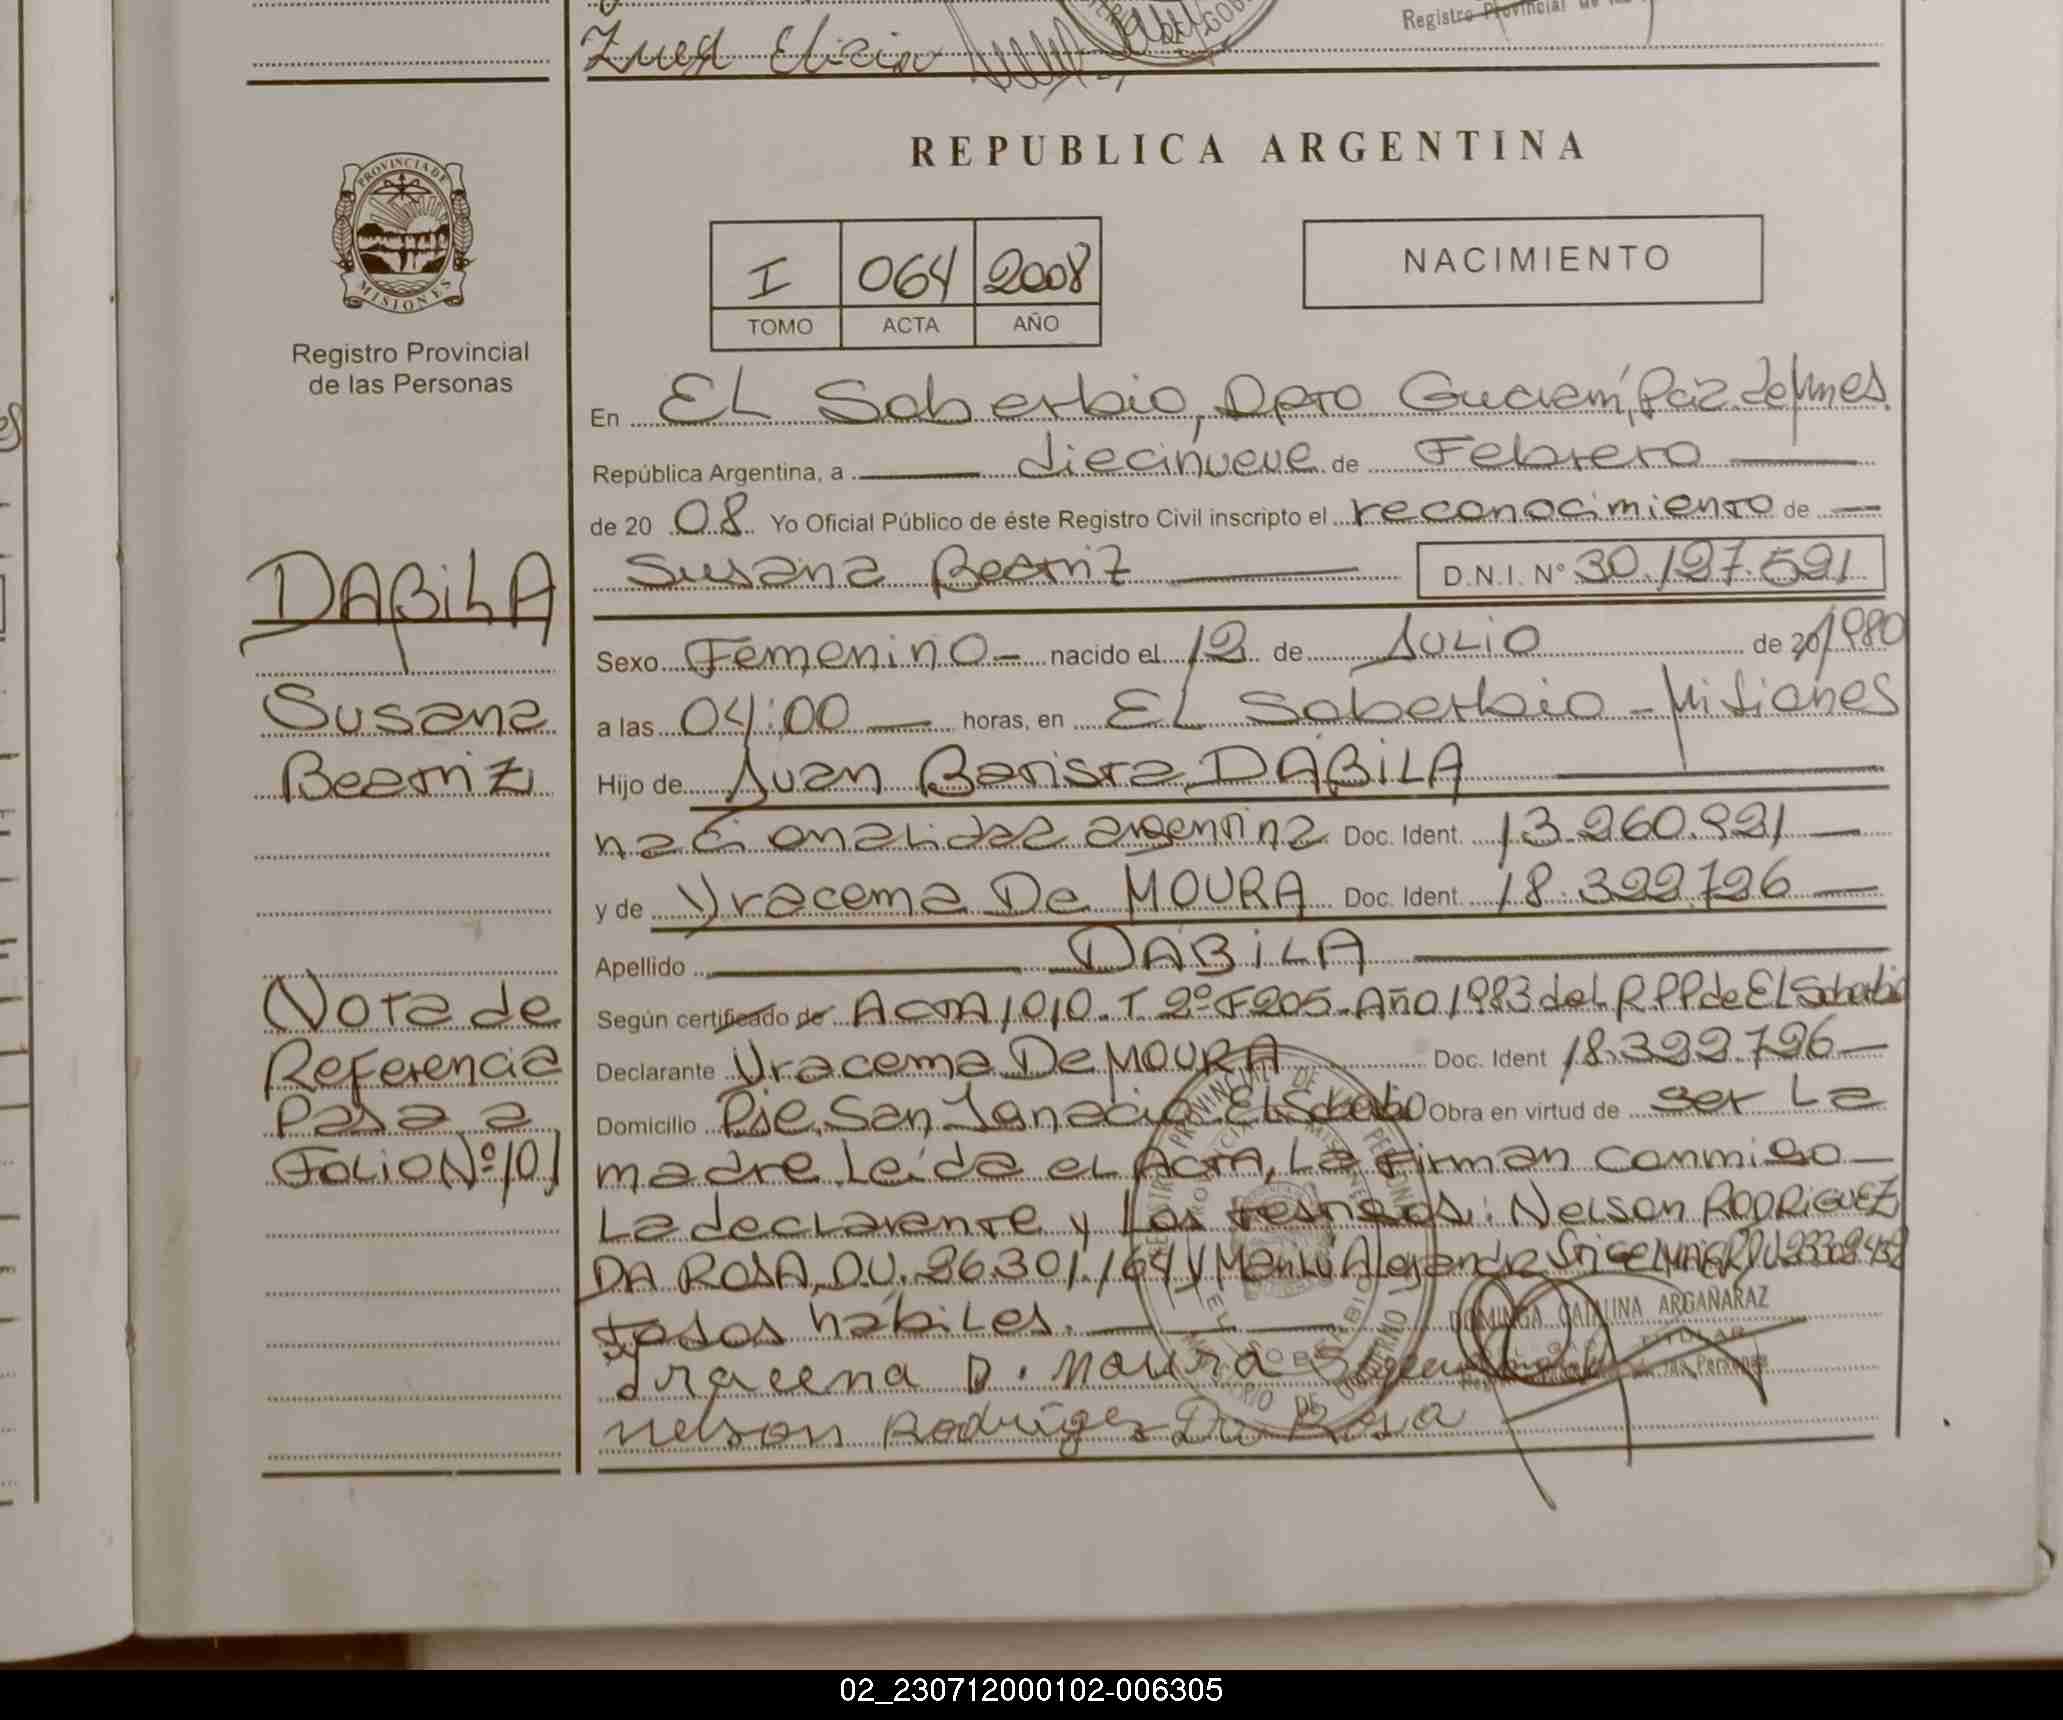 Registro Provincial de las
REPUBLICA ARGENTINA
PROVINCIA DE
MISIONES
Registro Provincial
de las Personas
NACIMIENTO
I 064 2008
TOMO ACTA AÑO
En EL Soberbio, Dpto Guaraní, Pcia. de Mnes.
República Argentina, a diecinueve de Febrero
de 20 08 Yo Oficial Público de éste Registro Civil inscripto el reconocimiento de
Susana Beatriz D.N.I. N° 30.197.591
DABILA
Susana
Beatriz
Sexo Femenino nacido el 12 de JuLio de 20/1980
a las 04:00 horas, en EL Soberbio - Misiones
Hijo de Juan Batista DABiLA
nacionaLidad argentina Doc. Ident. 13.260.921
y de Yracema De MOURA Doc. Ident. 18.322.796
Apellido DABiLA
Según certificado de Acta 1010. T 2º F205. Año 1983 deL R.P.P de EL Soberbio
Declarante Yracema De MOURA Doc. Ident 18.322.796
Domicilio Pje. San Ignacio EL Soberbio Obra en virtud de ser La
madre. Leída eL Acta, La Firman conmigo
La decLarante y Los testigos: NeLson RODRiGUEZ
DA ROSA, D.U. 26.301.164 y
todos hábiLes.
Nota de
Referencia
Pasa a
FoLio Nº 101
DOMINGA CATALINA ARGAÑARAZ
TITULAR
Iracema D. Moura
Nelson Rodrigez Da Rosa
02_230712000102-006305